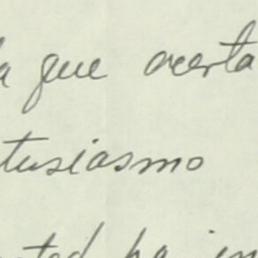 la que acerta
tusiasmo
usted ha in